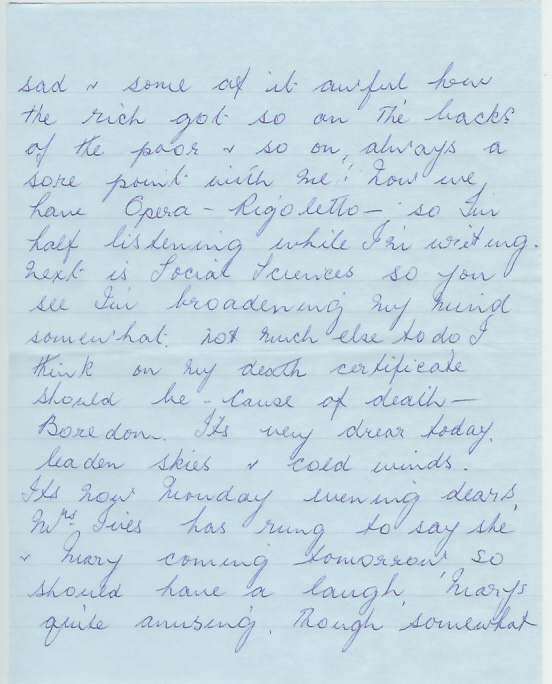 sad & some of it awful how
the rich got so on the backs
of the poor & so on, always a
sore point with me! Now we
have Opera - Rigoletto - so I'm
half listening while I'm writing.
Next is Social Sciences so you
see I'm broadening my mind
somewhat. not much else to do I
think on my death certificate
should be - Cause of death -
Boredom. Its very drear today,
leaden skies & cold winds.
Its now Monday evening dears,
Mrs Ives has rung to say she
& Mary coming tomorrow so
should have a laugh, Marys
quite amusing. Though somewhat